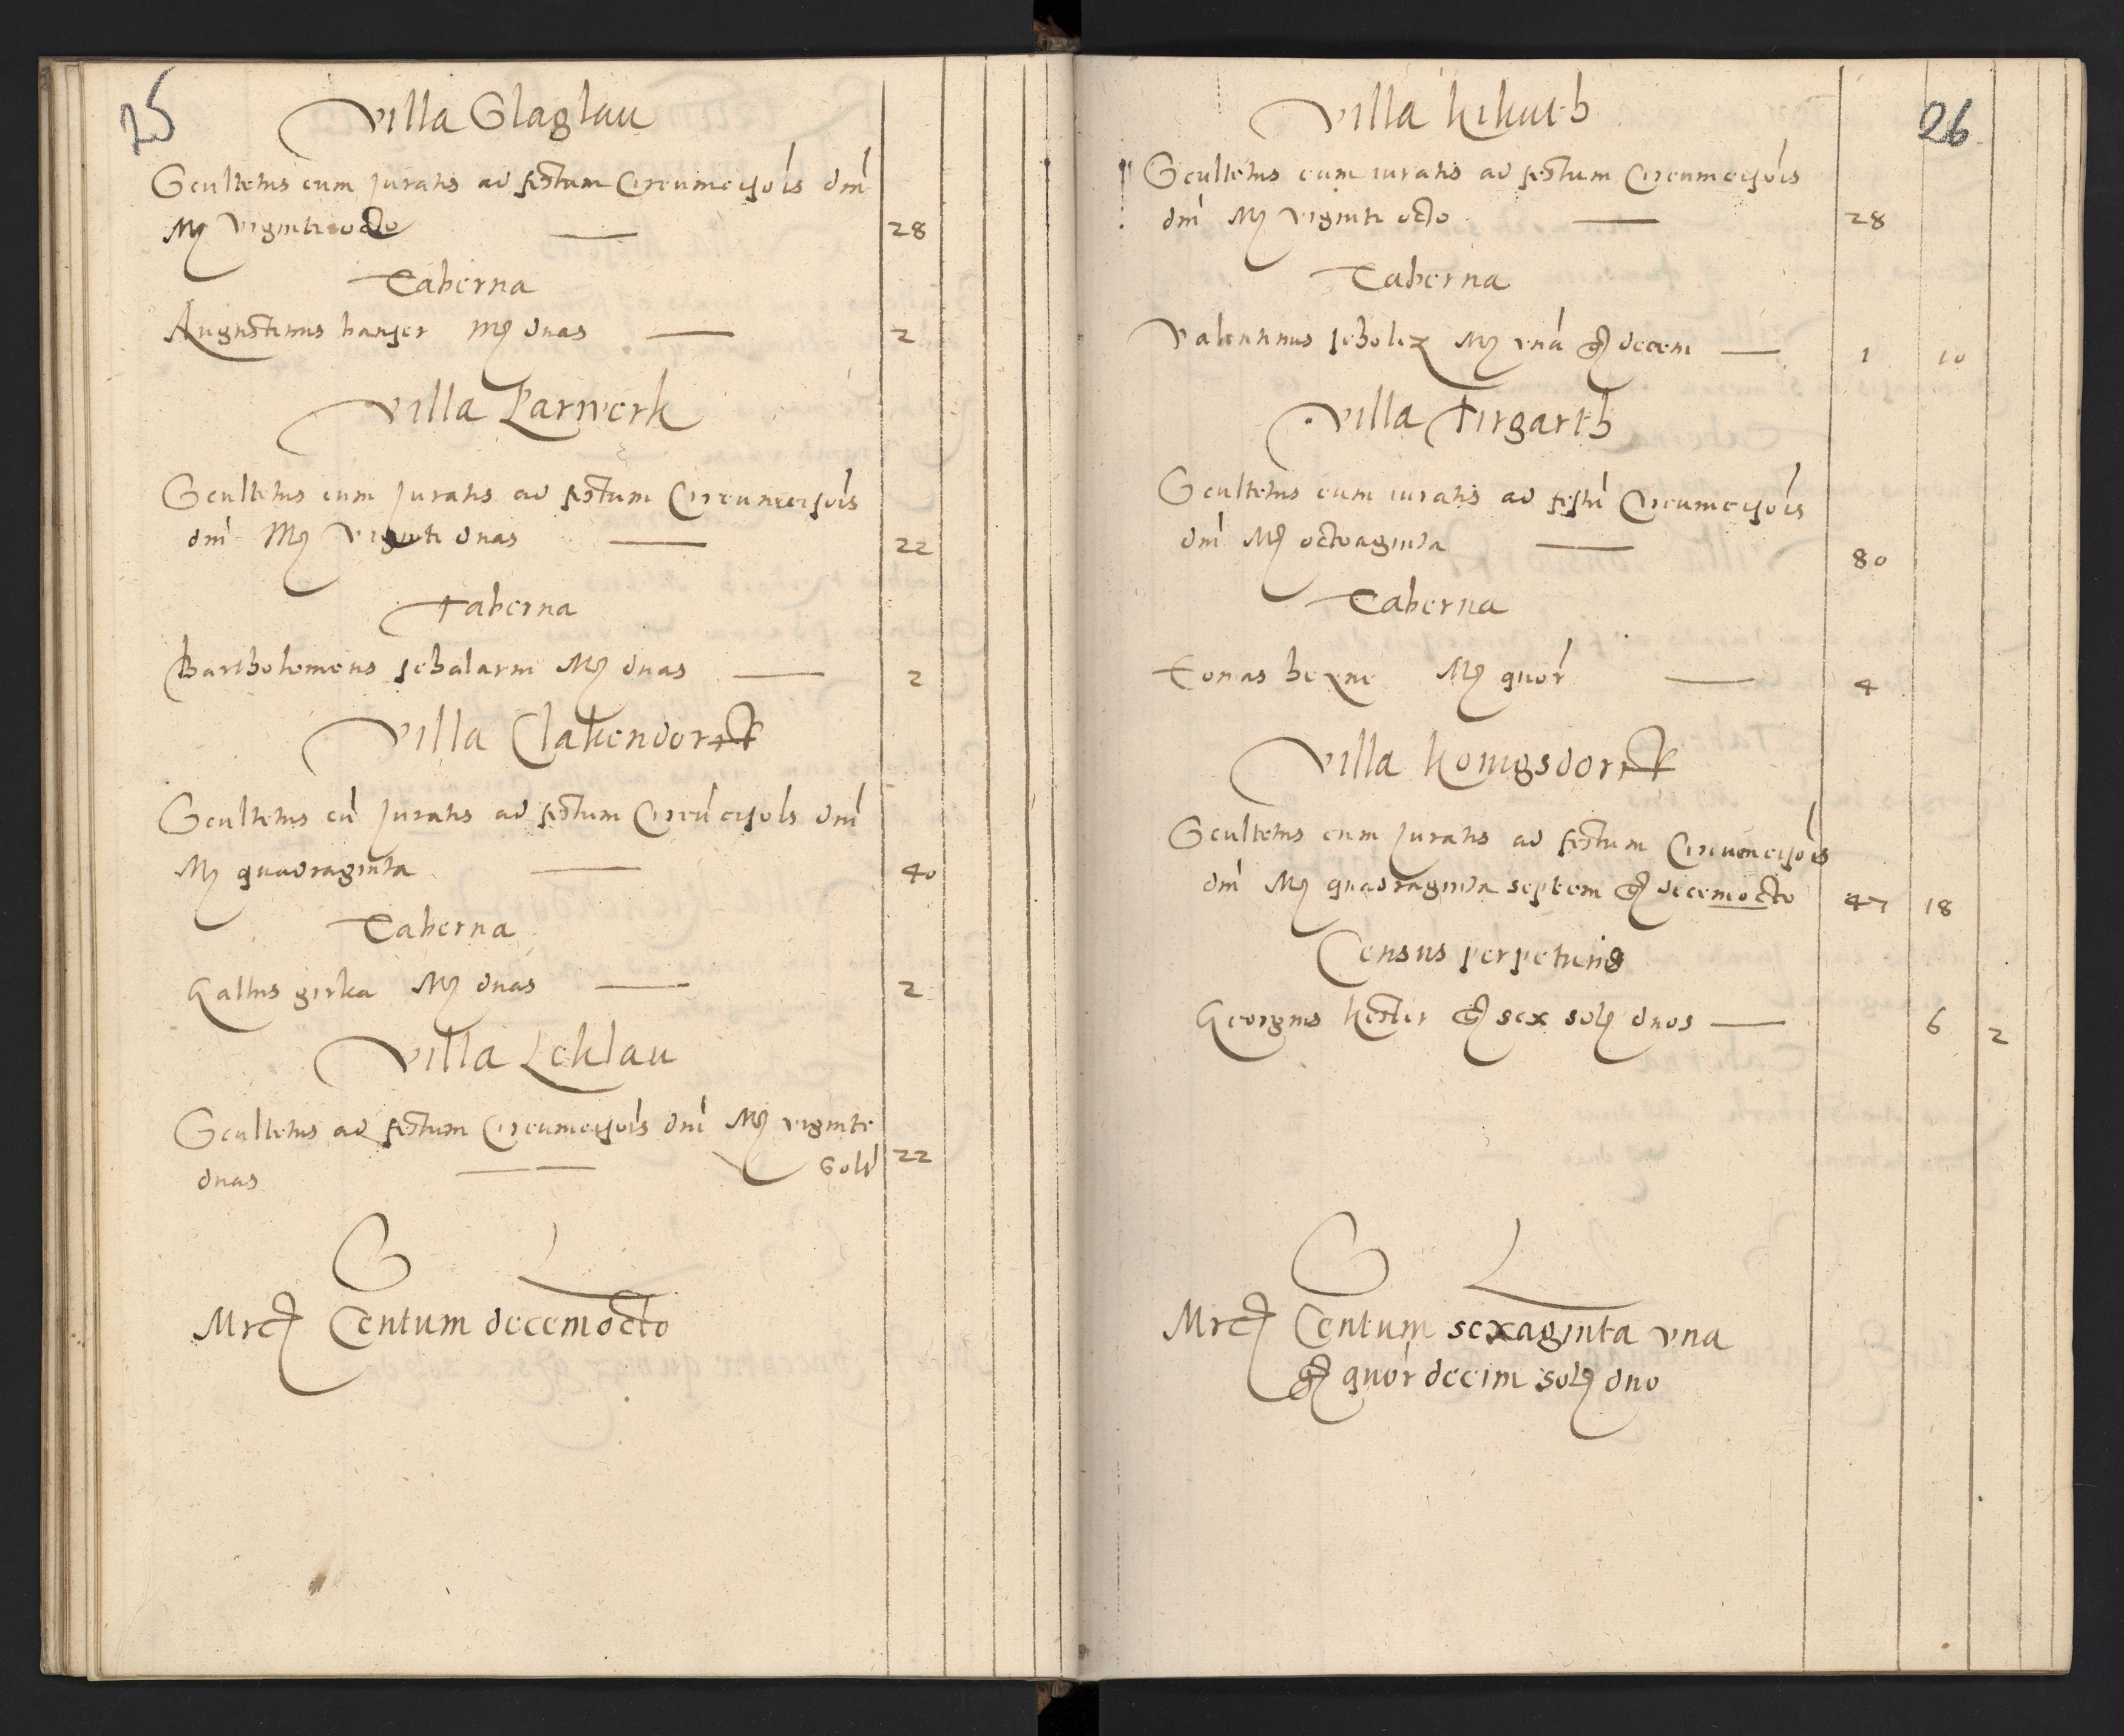 25
Villa Glaglau
Scultetus cum Juratis ad festum Circumcisiōis dnī
M vigintiocto — 28
Taberna
Augustinus hanser M duas — 2
Villa Parwerk
Scultetus cum Juratis ad festum Circumcisiōis
dnī M viginti duas — 22
Taberna
Bartholomeus schalarm M duas — 2
Villa Clakendorff
Scultetus cū Juratis ad festum Circūcisiōis dnī
M quadraginta — 40
Taberna
Gallus girka M duas — 2
Villa Leklau
Scultetus ad festum Circumcisiōis dnī M viginti
duas — — Solt 22
S L
Mrc Centum decemocto
26
Villa kikuth
Scultetus cum iuratis ad festum Circumcisiōis
dnī M viginti octo — 28
Taberna
Valentinus scholcz M unā g decem — 1 10
Villa Tirgarth
Scultetus cum iuratis ad festū Circumcisiōis
dnī M octoaginta — 80
Taberna
Tomas heyne M quor — 4
Villa konigsdorff
Scultetus cum Juratis ad festum Circumcisiōis
dnī M quadraginta septem g decemocto 47 18
Census perpetuus
Georgius kester g sex sol duos — 6 2
S L
Mrc Centum sexaginta una
g quor decim sol duo